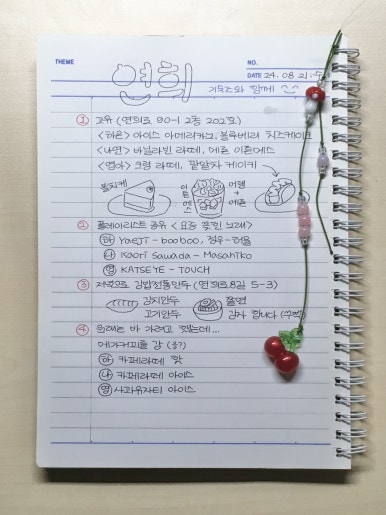 THEME
NO.
DATE 24. 08 21. 수
연희
기록조와 함께
① 고유 (연희로 90-1 2층 202호)
<하은> 아이스 아메리카노, 블루베리 치즈케이크
<나연> 바닐라빈 라떼, 에플 이튼에스
<영아> 크림 라떼, 팥말차 케이키
블치케
이튼에스
머랭 + 애플
② 플레이리스트 공유 <요즘 꽂힌 노래>
하 Yaeji - booboo, 정우 - 허물
나 Kaori Sawada - Masahiko
영 KATSEYE - TOUCH
③ 저녁으로 김밥전통만두 (연희로8길 5-3)
김치만두
쫄면
고기만두
감자 옹심이
④ 원래는 바 가려고 했는데...
메가커피를 감 (응?)
하 카페라떼 핫
나 카페라떼 아이스
영 사과유자티 아이스